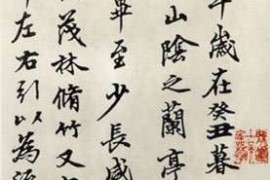 年歲在癸丑暮
山陰之蘭亭
畢至少長咸
茂林脩竹又
左右引以為流